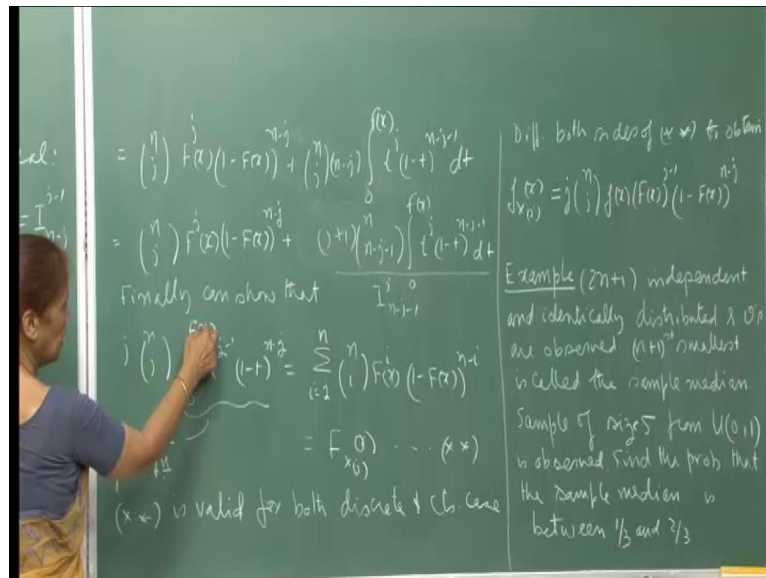 al:
= I^{j-1}_{n-j}
= \binom{n}{j} F^{j}(x) (1-F(x))^{n-j} + \binom{n}{j} (n-j) \int_0^{F(x)} t^{j} (1-t)^{n-j-1} dt
= \binom{n}{j} F^{j}(x) (1-F(x))^{n-j} + (j+1) \binom{n}{n-j-1} \int_0^{F(x)} t^{j} (1-t)^{n-j-1} dt
I^{j}_{n-j-1}
Finally can show that
j \binom{n}{j} (1-t)^{n-j} = \sum_{i=j}^{n} \binom{n}{i} F^{i}(x) (1-F(x))^{n-i}
= F_{X_{(j)}}(x) ... (**)
(**) is valid for both discrete & cts. case
Diff. both sides of (**) to obtain
f_{X_{(j)}}(x) = j \binom{n}{j} f(x) (F(x))^{j-1} (1-F(x))^{n-j}
Example (2n+1) independent
and identically distributed r.v's
are observed (n+1)^{st} smallest
is called the sample median.
Sample of size 5 from U(0,1)
is observed. Find the prob. that
the sample median is
between 1/3 and 2/3